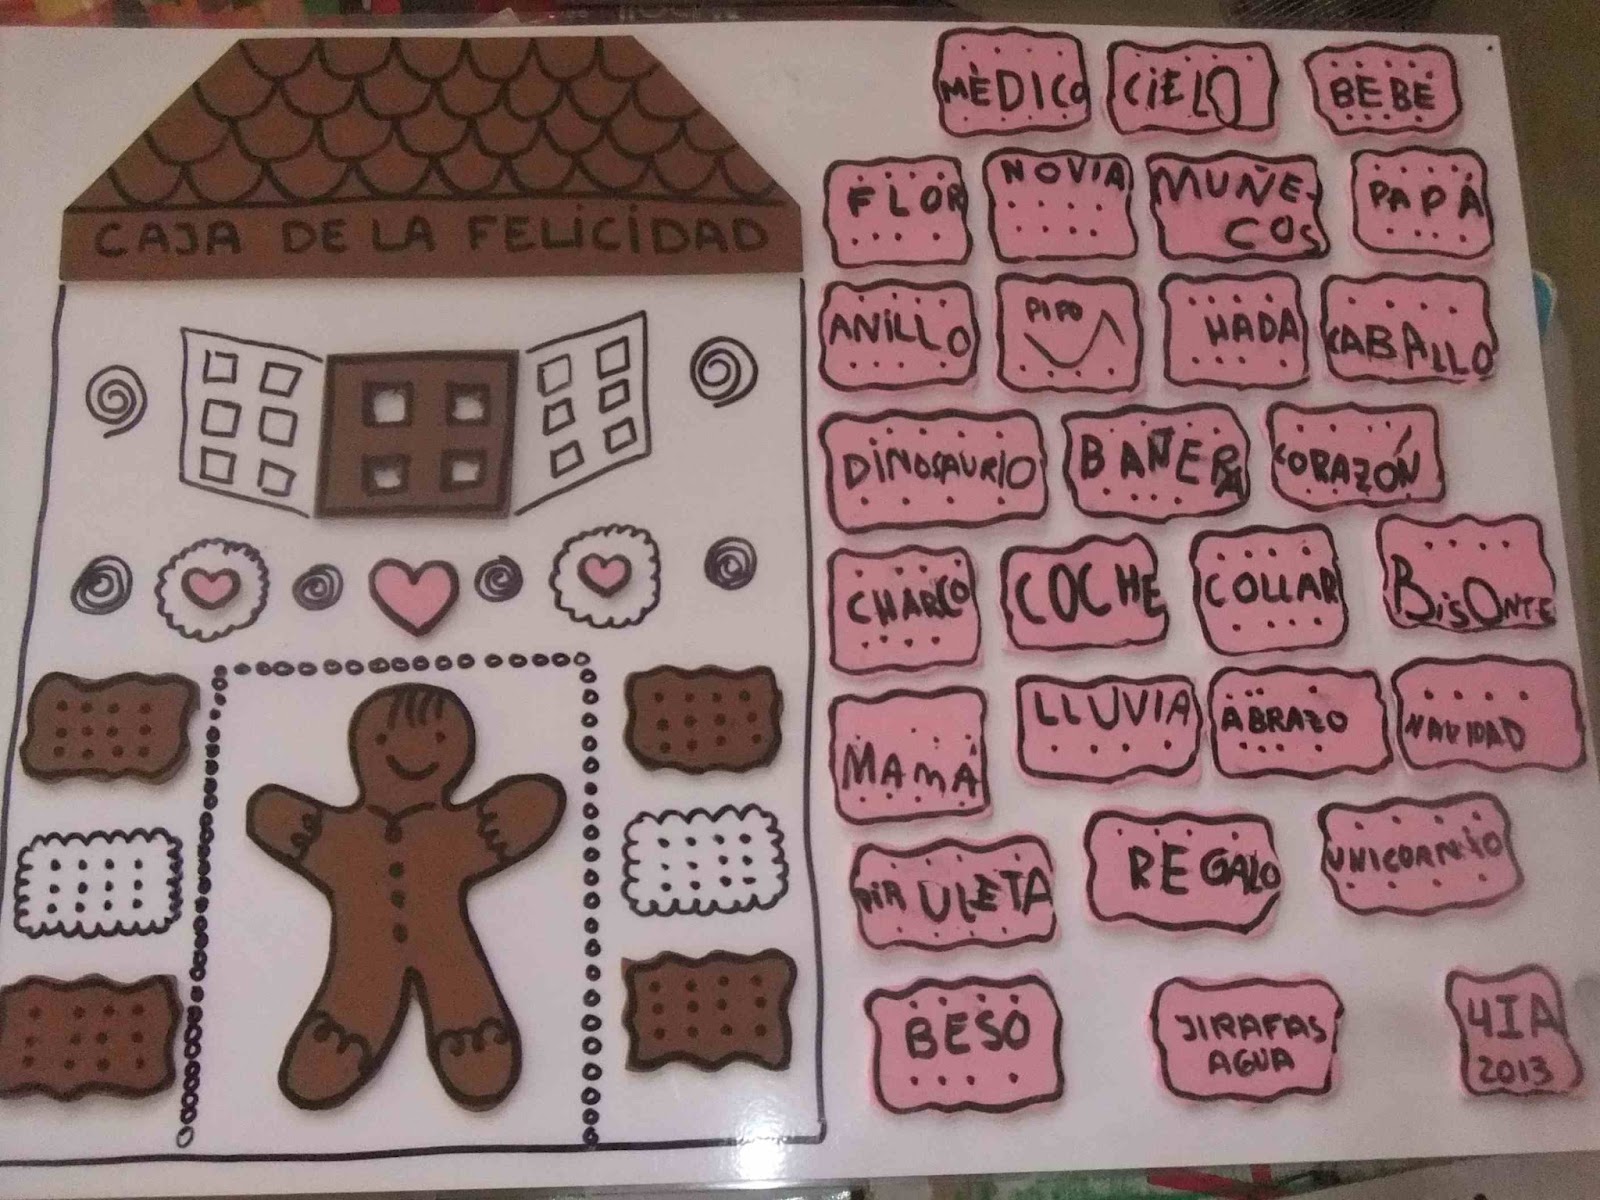 CAJA DE LA FELICIDAD
MÈDICO CiELO BEBE
FLOR NOVIA MUÑE-
COS PAPÁ
ANiLLO PIPO HADA CABALLO
DiNOSAURIO BAÑERA CORAZÓN
CHARCO COCHE COLLAR BiSONTE
MAMÁ LLUVIA ABRAZO NAVIDAD
PIRULETA REGALO UNICORNIO
BESO JIRAFAS
AGUA
4IA
2013